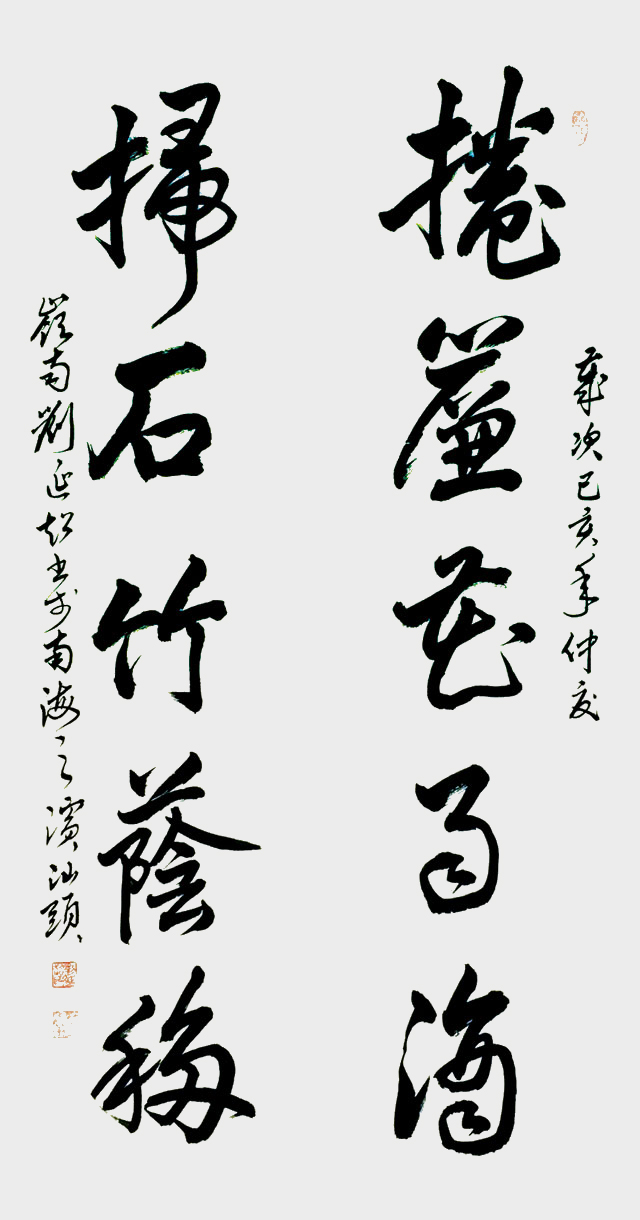 歲次己亥年仲夏
捲簾花雨滴
掃石竹蔭移
嶺南劉延超書於南海之濱汕頭